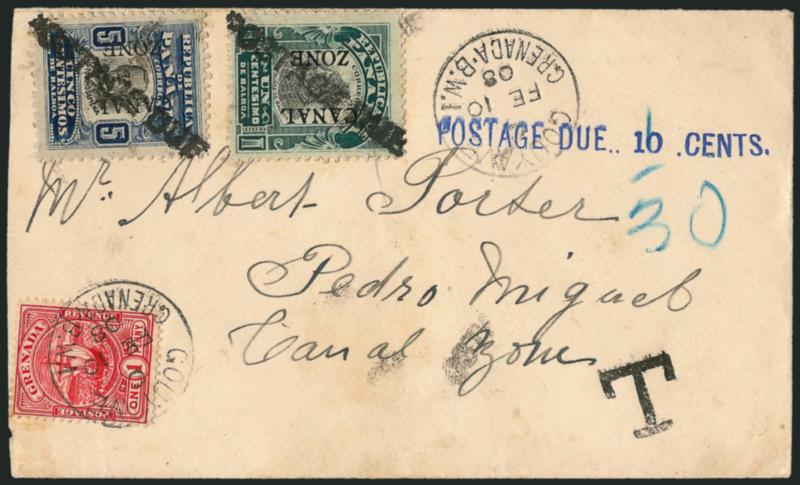 REPUBLICA
DE
PANAMA
CORREOS
5 5
CINCO
CENTESIMOS
DE BALBOA
CANAL
ZONE
REPUBLICA
DE
PANAMA
CORREOS
1 UN 1
CENTESIMO
DE BALBOA
CANAL
ZONE
GRENADA. B.W.I.
FE 10
08
POSTAGE DUE.. 10 .CENTS.
30
Mr. Albert Porter
Pedro Miguel
Canal Zone
GRENADA
POSTAGE
ONE 1D
T